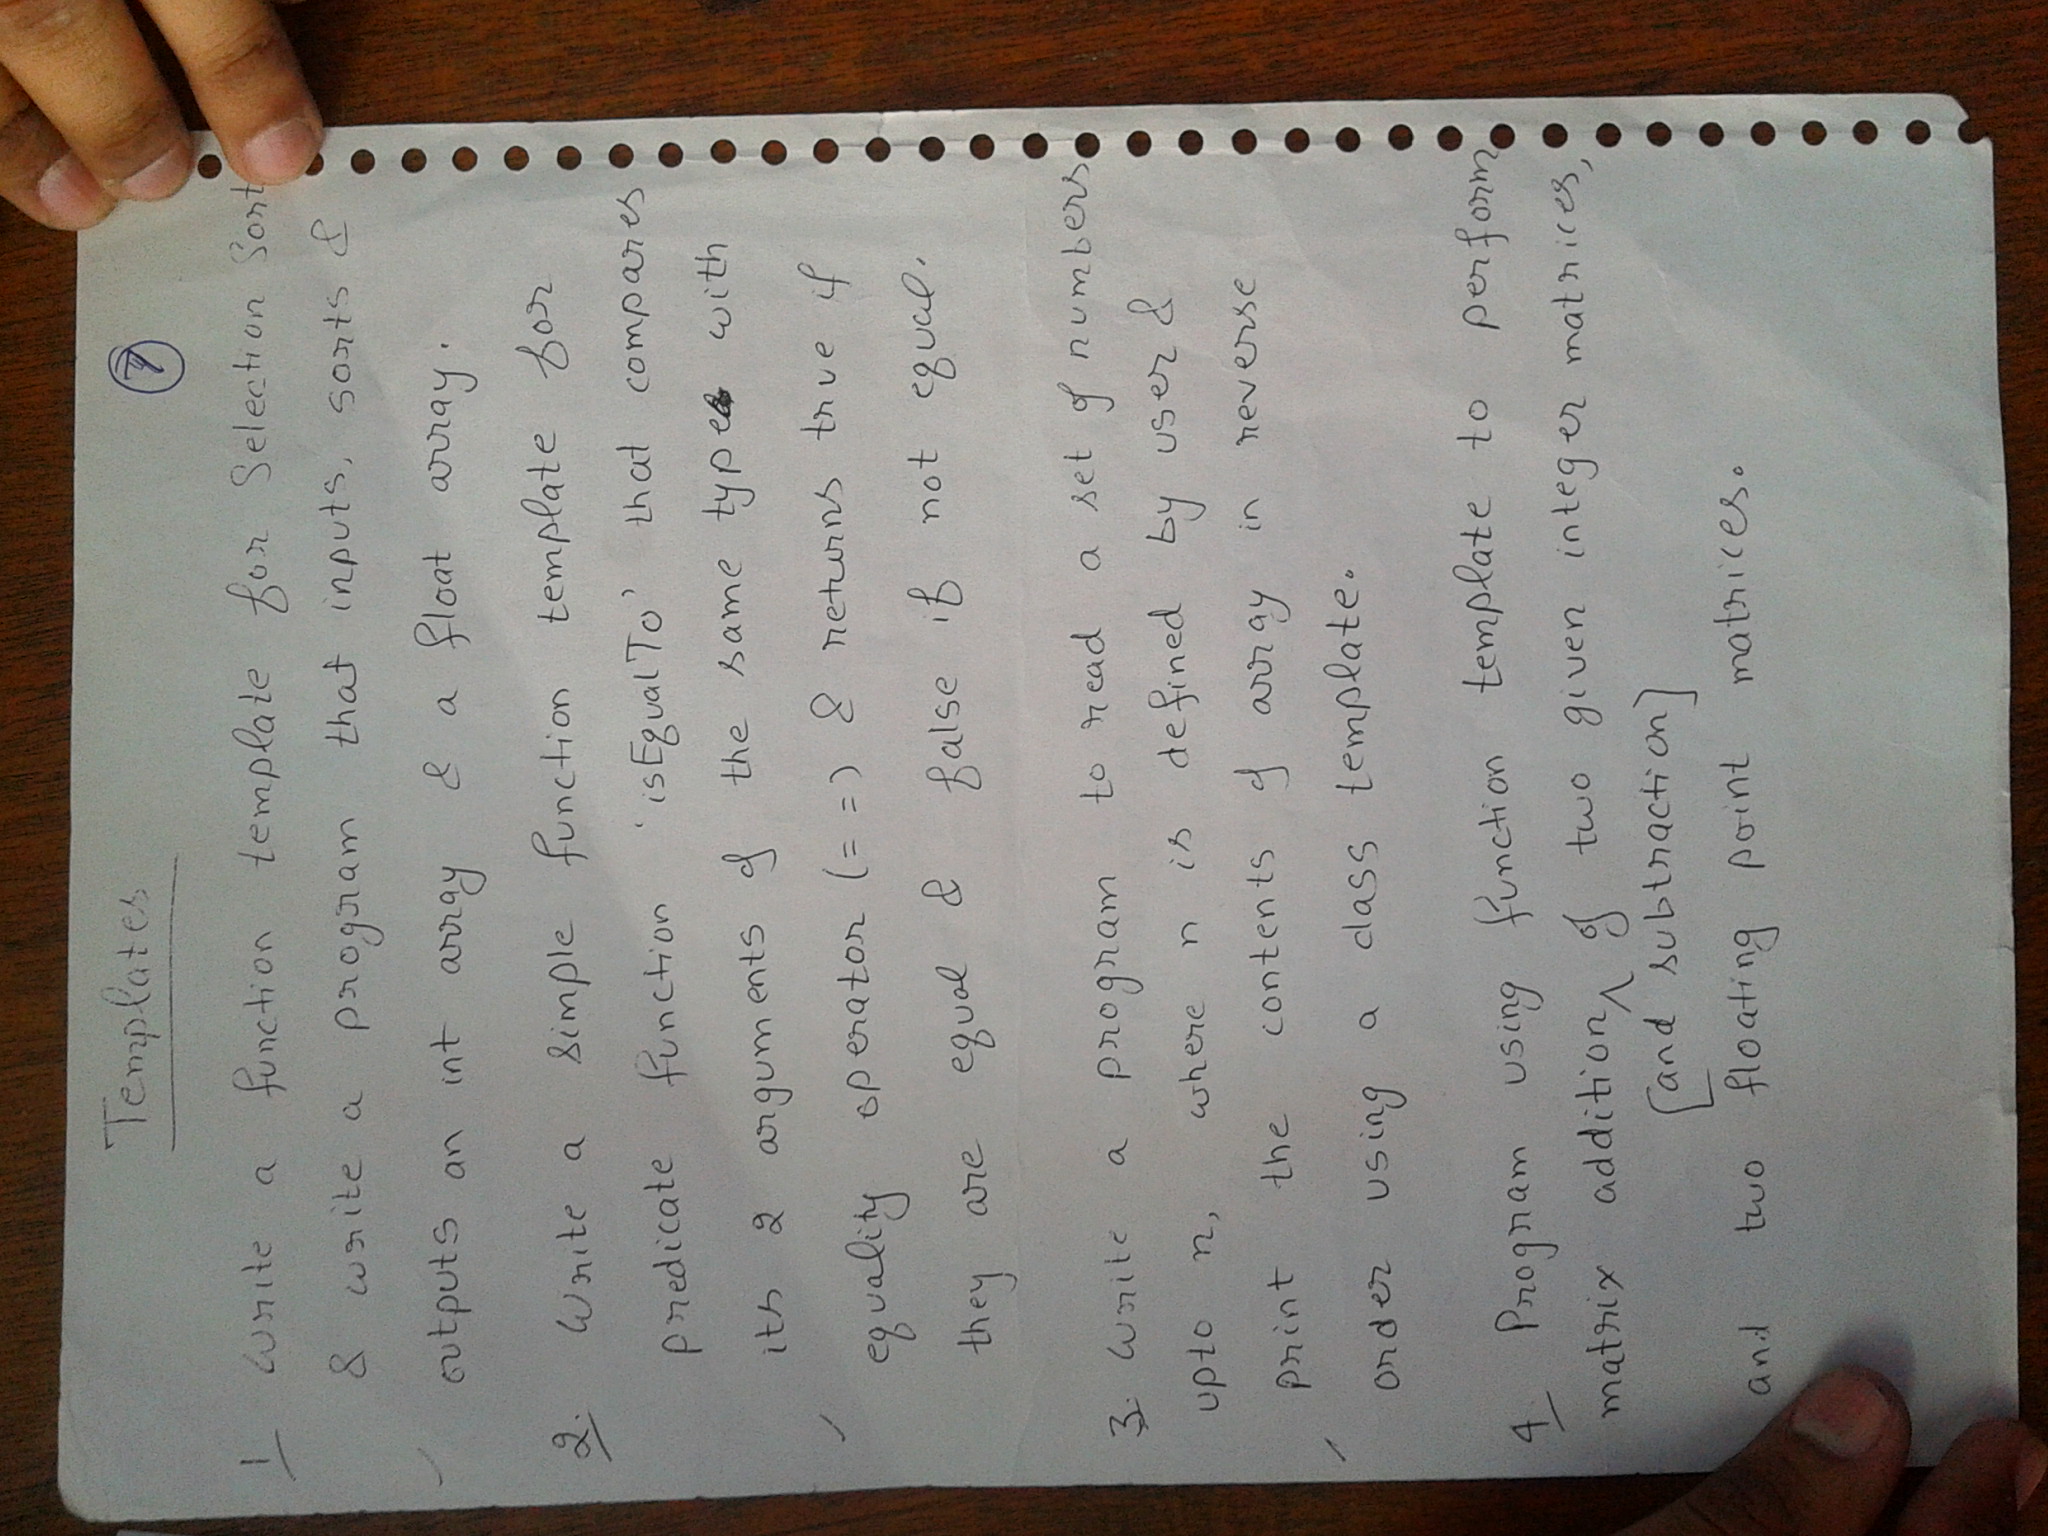 Templates
1 Write a function template for Selection Sort
& write a program that inputs, sorts &
outputs an int array & a float array.
2. Write a simple function template for
predicate function 'isEqualTo' that compares
its 2 arguments of the same type with
equality operator (==) & returns true if
they are equal & false if not equal.
3. Write a program to read a set of numbers
upto n, where n is defined by user &
print the contents of array in reverse
order using a class template.
4 Program using function template to perform
matrix addition ^ of two given integer matrices,
[and subtraction]
and two floating point matrices.